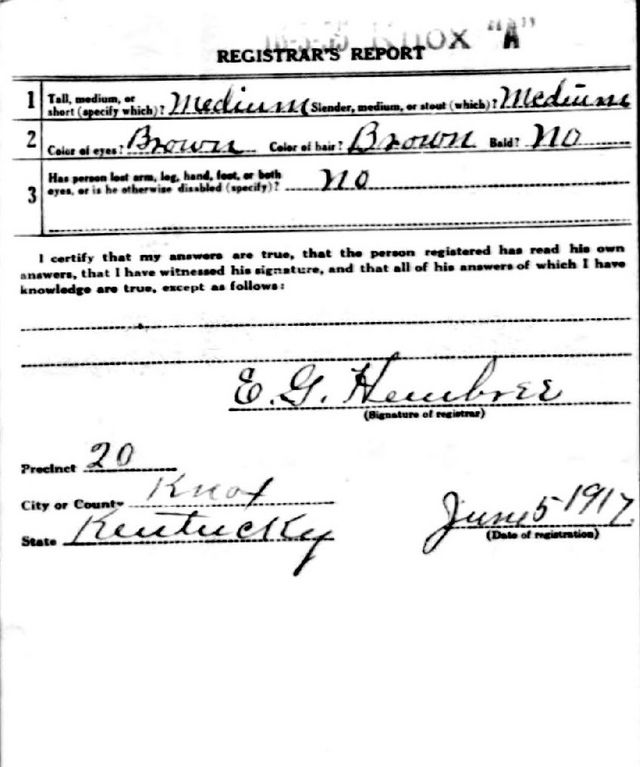 Knox "A"
REGISTRAR'S REPORT
1 Tall, medium, or short (specify which)? Medium Slender, medium, or stout (which)? Medium
2 Color of eyes? Brown Color of hair? Brown Bald? No
3 Has person lost arm, leg, hand, foot, or both
eyes, or is he otherwise disabled (specify)? no
I certify that my answers are true, that the person registered has read his own
answers, that I have witnessed his signature, and that all of his answers of which I have
knowledge are true, except as follows:
E. G. Hembree
(Signature of registrar)
Precinct 20
City or County Knox
State Kentucky
June 5 1917
(Date of registration)